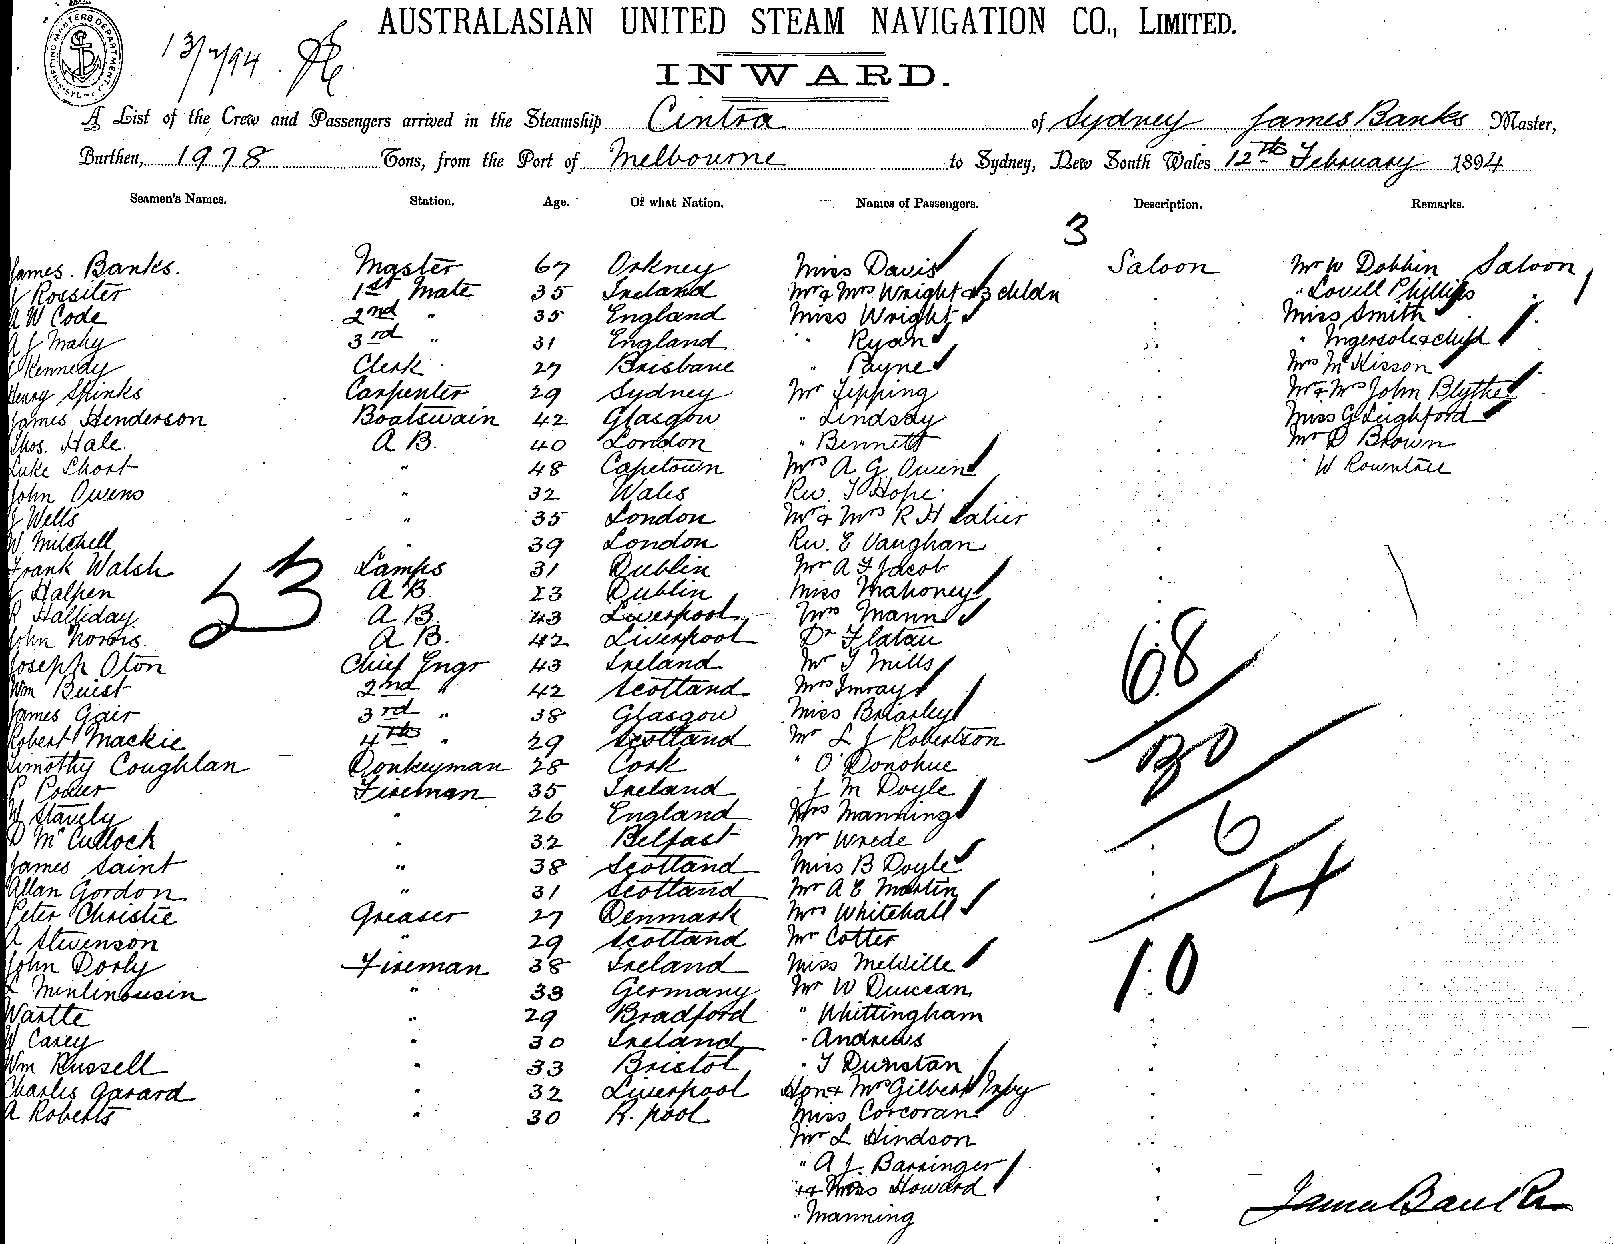 13/2/94
AUSTRALASIAN UNITED STEAM NAVIGATION CO., LIMITED.
INWARD.
A List of the Crew and Passengers arrived in the Steamship Cintra of Sydney James Banks Master,
Burthen, 1978 Tons, from the Port of Melbourne to Sydney, New South Wales 12th February 1894
Seamen's Names. Station. Age. Of what Nation. Names of Passengers. Description. Remarks.
3
James. Banks. Master 67 Orkney Miss Davis Saloon Mr W Dobbin Saloon
J Rossiter 1st Mate 35 Ireland Mr & Mrs Wright & 3 childn " Lovell Phillips
A W Code 2nd " 35 England Miss Wright Miss Smith
A J Mahy 3rd " 31 England " Ryan " Ingersole & child
Kennedy Clerk 27 Brisbane " Payne Mrs McKisson
Henry Spinks Carpenter 29 Sydney Mr Tipping Mr & Mrs John Blythe
James Henderson Boatswain 42 Glasgow " Lindsay Miss G Leighford
Thos. Hale A B. 40 London " Bennett Mr D Brown
Luke Short " 48 Capetown Mrs A G Owen " W Rowntree
John Owens " 32 Wales Rev. T Hope
J Wells " 35 London Mr & Mrs R H Salier
W Mitchell 39 London Rev. E Vaughan
Frank Walsh Lamps 31 Dublin Mr A F Jacob
J Halpen A B. 23 Dublin Miss Mahoney
R Halliday A B. 43 Liverpool Mrs Mann
John Norris A B. 42 Liverpool Dr Flatau
53
Joseph Oton Chief Engr 43 Ireland Mr T Mills
Wm Buist 2nd " 42 Scotland Mrs Imray
James Gair 3rd " 38 Glasgow Miss Briarley
Robert Mackie 4th " 29 Scotland Mr L J Robertson
Timothy Coughlan Donkeyman 28 Cork " O'Donohue
P Power Fireman 35 Ireland " J M Doyle
W Stavely " 26 England Mrs Manning
D McCullock " 32 Belfast Mr Wrede
James Saint " 38 Scotland Miss B Doyle
Allan Gordon " 31 Scotland Mr A E Martin
Peter Christie Greaser 27 Denmark Mrs Whitehall
A Stevenson " 29 Scotland Mr Cotter
John Dorly Fireman 38 Ireland Miss Melville
" 33 Germany Mr W Duncan
Wartle " 29 Bradford " Whittingham
W Carey " 30 Ireland " Andrews
Wm Russell " 33 Bristol " T Dunstan
Charles Garard " 32 Liverpool Hon & Mrs Gilbert
A Roberts " 30 R. pool Miss Corcoran
Mr L Hindson
" A J. Barringer
" & Miss Howard
" Manning
68
30
6
4
10
James Banks